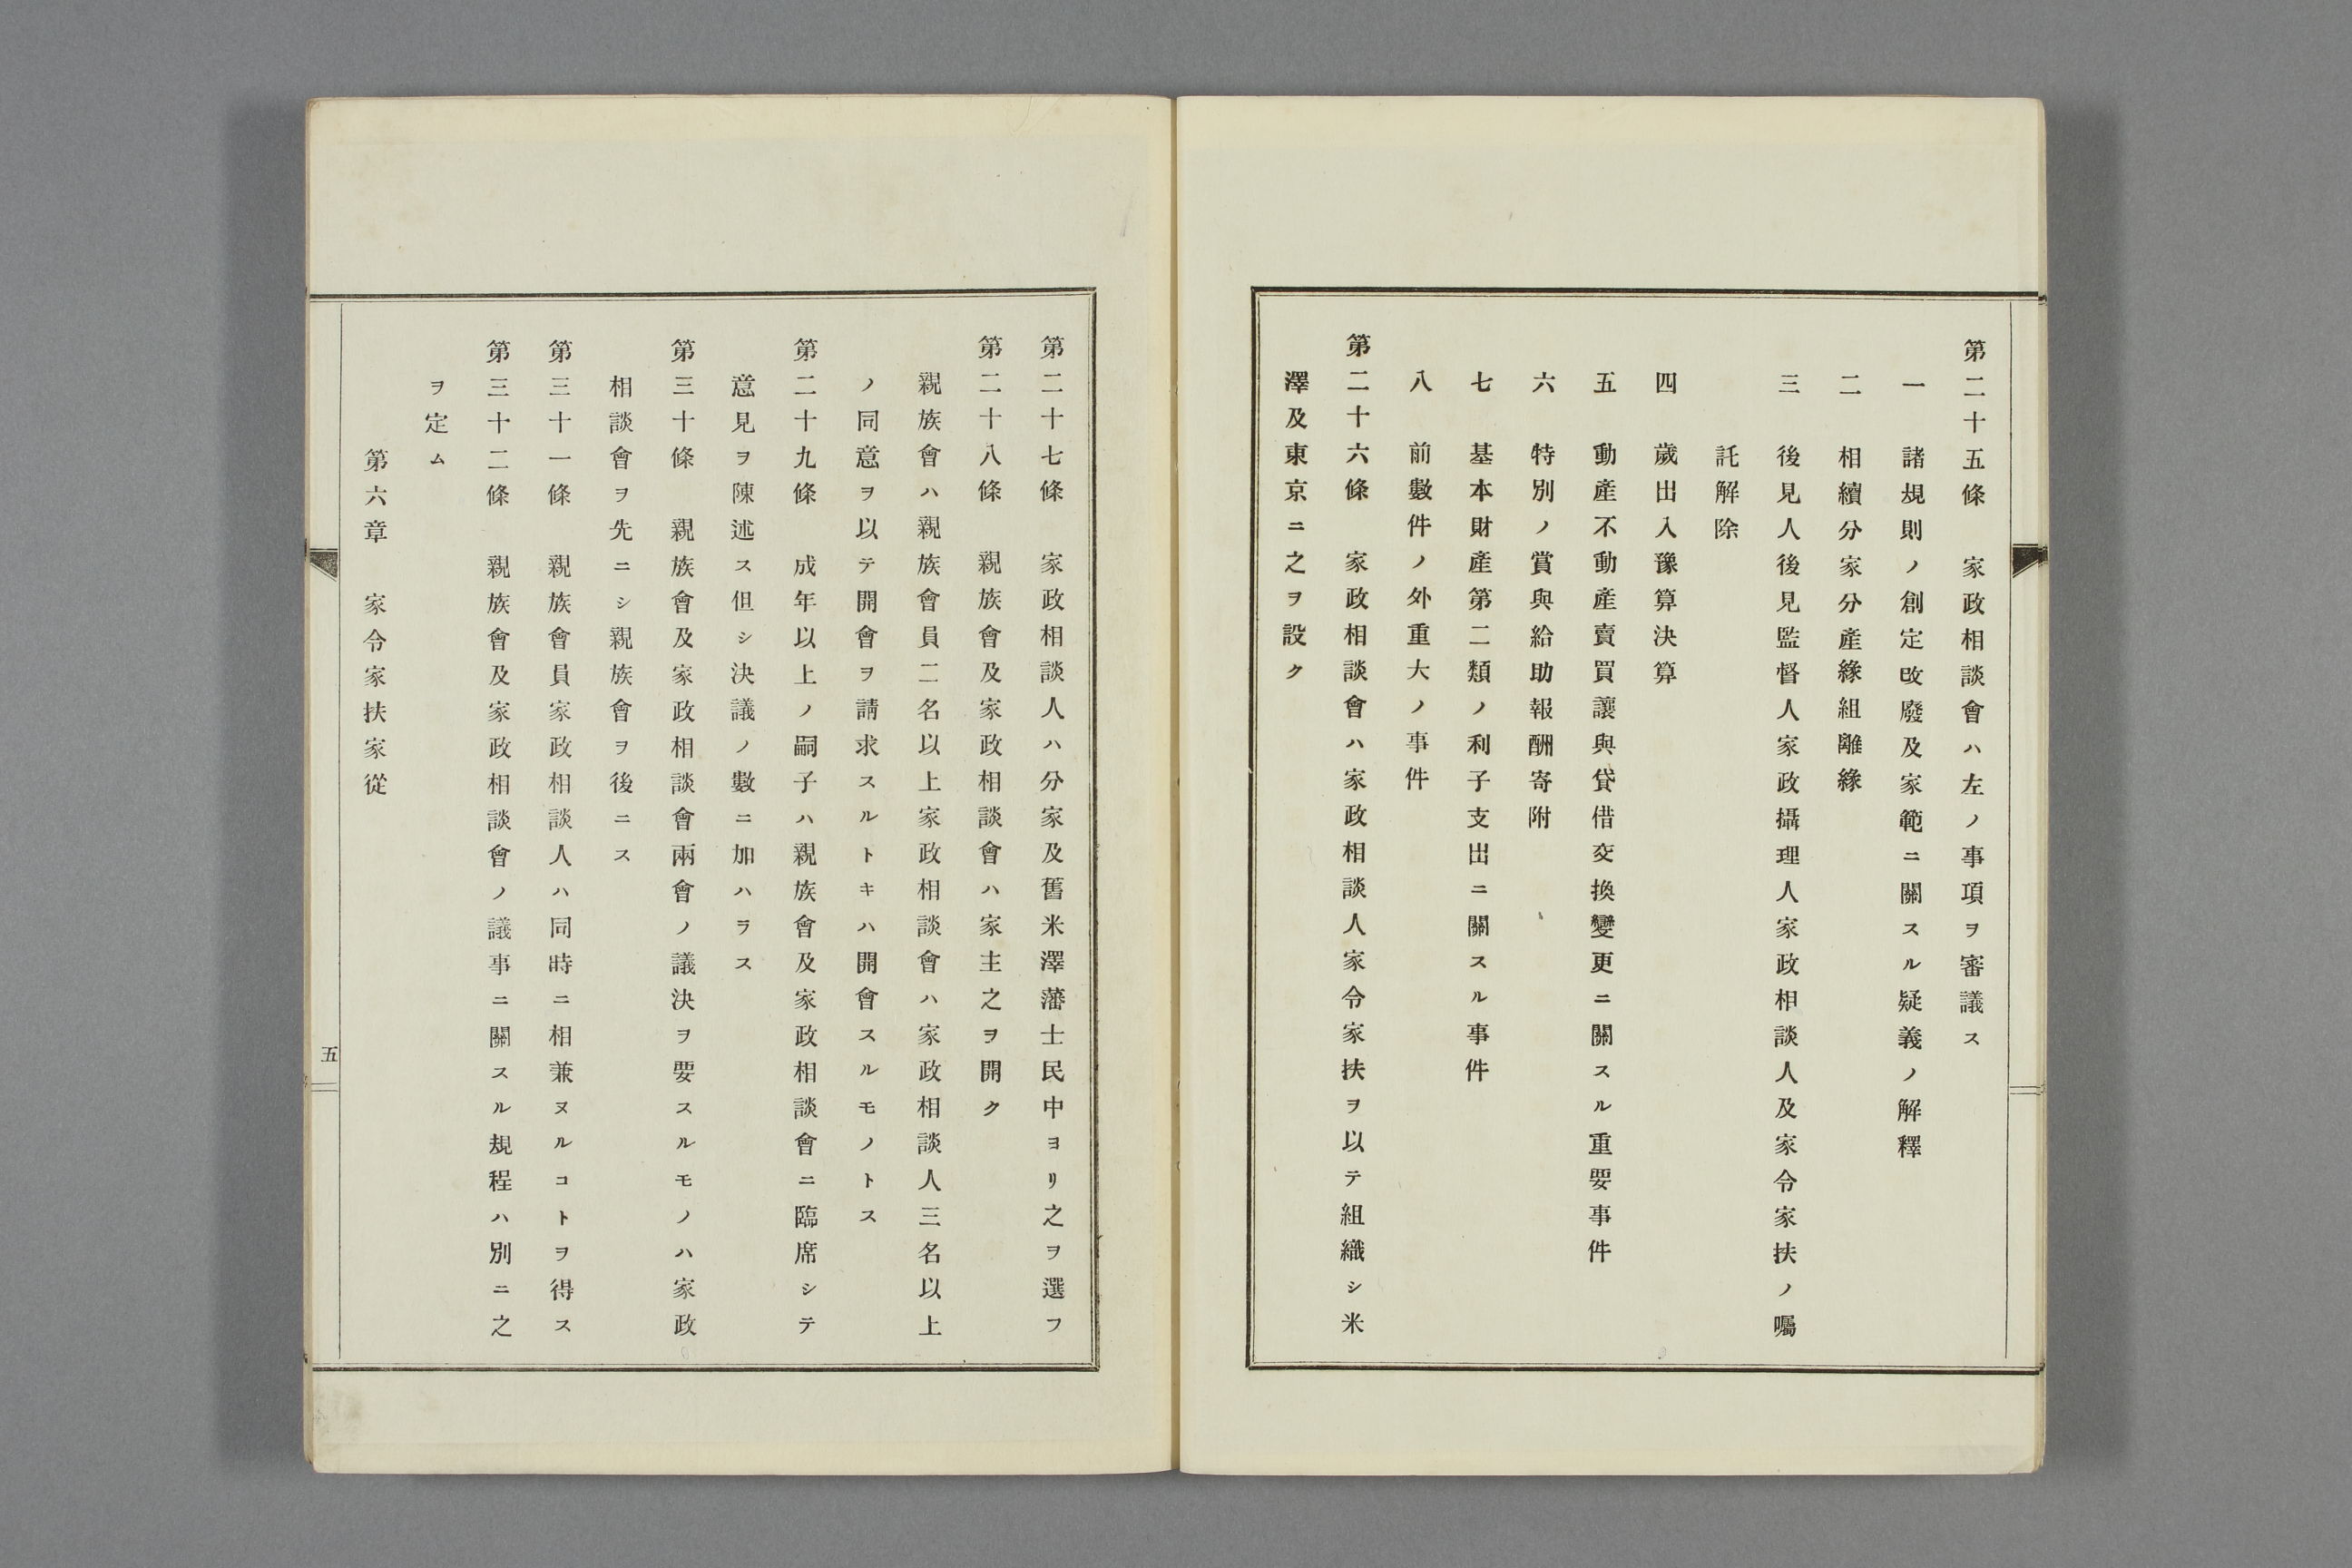 第二十五條　家政相談會ハ左ノ事項ヲ審議ス
一　諸規則ノ創定改廢及家範ニ關スル疑義ノ解釋
二　相續分家分產緣組離緣
三　後見人後見監督人家政攝理人家政相談人及家令家扶ノ囑
託解除
四　歲出入豫算決算
五　動產不動產賣買讓與貸借交換變更ニ關スル重要事件
六　特別ノ賞與給助報酬寄附
七　基本財產第二類ノ利子支出ニ關スル事件
八　前數件ノ外重大ノ事件
第二十六條　家政相談會ハ家政相談人家令家扶ヲ以テ組織シ米
澤及東京ニ之ヲ設ク
第二十七條　家政相談人ハ分家及舊米澤藩士民中ヨリ之ヲ選フ
第二十八條　親族會及家政相談會ハ家主之ヲ開ク
親族會ハ親族會員二名以上家政相談會ハ家政相談人三名以上
ノ同意ヲ以テ開會ヲ請求スルトキハ開會スルモノトス
第二十九條　成年以上ノ嗣子ハ親族會及家政相談會ニ臨席シテ
意見ヲ陳述ス但シ決議ノ數ニ加ハラス
第三十條　親族會及家政相談會兩會ノ議決ヲ要スルモノハ家政
相談會ヲ先ニシ親族會ヲ後ニス
第三十一條　親族會員家政相談人ハ同時ニ相兼ヌルコトヲ得ス
第三十二條　親族會及家政相談會ノ議事ニ關スル規程ハ別ニ之
ヲ定ム
第六章　家令家扶家從
五